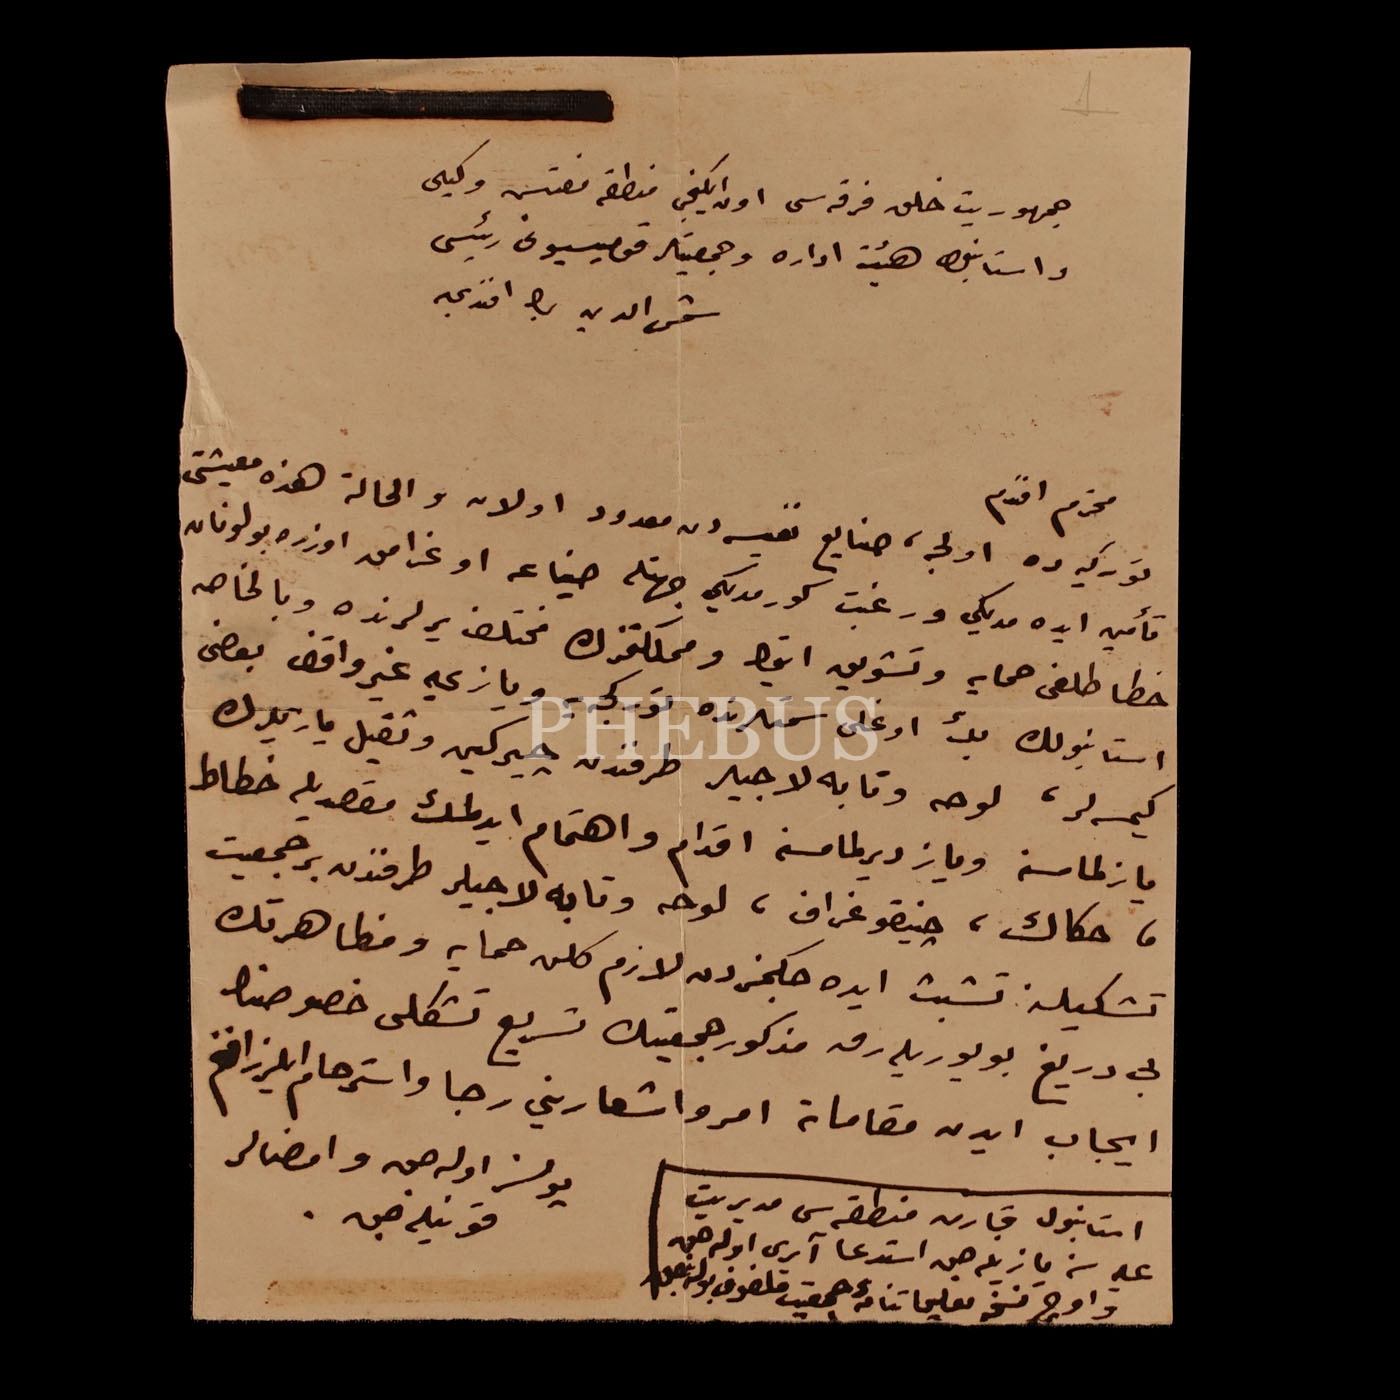 جمهوریت خلق فرقه‌سی اون ایکنجی منطقه مفتش وکیلی
و استانبول هیئت اداره و جمعیتلر قومیسیونی رئیسی
شمس الدین بك افندی‌یه
محترم افندم
تورکیه‌ده اولجه، صنایع نفیسه‌دن معدود اولان و الحالة هذه معیشتی
تأمین ایده‌مدیکی و رغبت کورمدیکی جهتله ضیاعه اوغرامق اوزره بولونان
خطاطلغی حمایه و تشویق ایتمك و مملکتمزك مختلف یرلرنده و بالخاصه
استانبولك بك اوغلی سمتلرنده تورکجه‌یه و یازی‌یه غیر واقف بعضی
کیمسه‌لر، لوحه و تابه‌لاجیلر طرفندن چیرکین و ثقیل یازیلرك
یازلمامسنه و یازدیرلمامسنه اقدام و اهتمام ایدلمك مقصدیله خطاط
، حکاك، چینقوغراف، لوحه و تابه‌لاجیلر طرفندن بر جمعیت
تشکیلنه تشبث ایده‌جکمزدن لازم کلن حمایه و مظاهرتك
بی دریغ بویوریله‌رق مذکور جمعیتك تسریع تشکلی خصوصنده
ایجاب ایدن مقاماته امر و اشعارینی رجا و استرحام ایلرز افندم
پولنز اوله‌جق و امضالر
قونیله‌جق .
استانبول تجارت منطقه‌سی مدیریت
علیه‌سنه یازیله‌جق استدعا آیری اوله‌جق
و اوچ نسخه تعلیماتنامه‌ٔ جمعیت ملفوف بولنه‌جق
PHEBUS